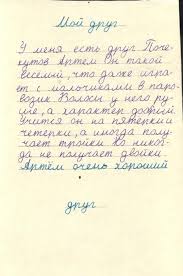 Мой друг
У меня есть друг Поче-
кутов Артём Он такой
весёлый, что даже игра-
ет с мальчиками в паро-
возик Волосы у него ру-
сые, а характер добрый
учится он на пятёрки и
четёрки, а иногда полу-
чает тройки но никог-
да не получает двойки
Артём очень хороший
друг